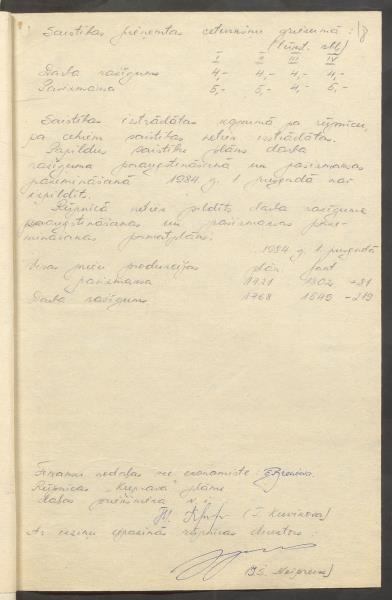 Saistības pieņemtas ceturkšņu griezumā :
18
(tūkst. rbļ)
I II III IV
Darba ražīgums 4,- 4,- 4,- 4,-
Pašizmaksa 5,- 5,- 4,- 5,-
Saistības izstrādātas kopumā pa rūpnīcu,
pa cehiem saistības netiek izstrādātas.
Papildus saistību plāns darba
ražīguma paaugstināšanā un pašizmaksas
pazemināšanā 1984. g. 1 pusgadā nav
izpildīts.
Rūpnīcā netiek pildīts darba ražīguma
paaugstināšanas un pašizmaksas paze-
mināšanas plāns.
1984. g. 1 pusgadā
preču produkcijas plān fakt
pašizmaksa 1721 1802 +81
Darba ražīgums 1768 1549 -219
Finansu nodaļas vec. ekonomiste
Rūpnīcas plānu
daļas priekšnieka v.
Ar izziņu iepazinās rūpnīcas direktors :